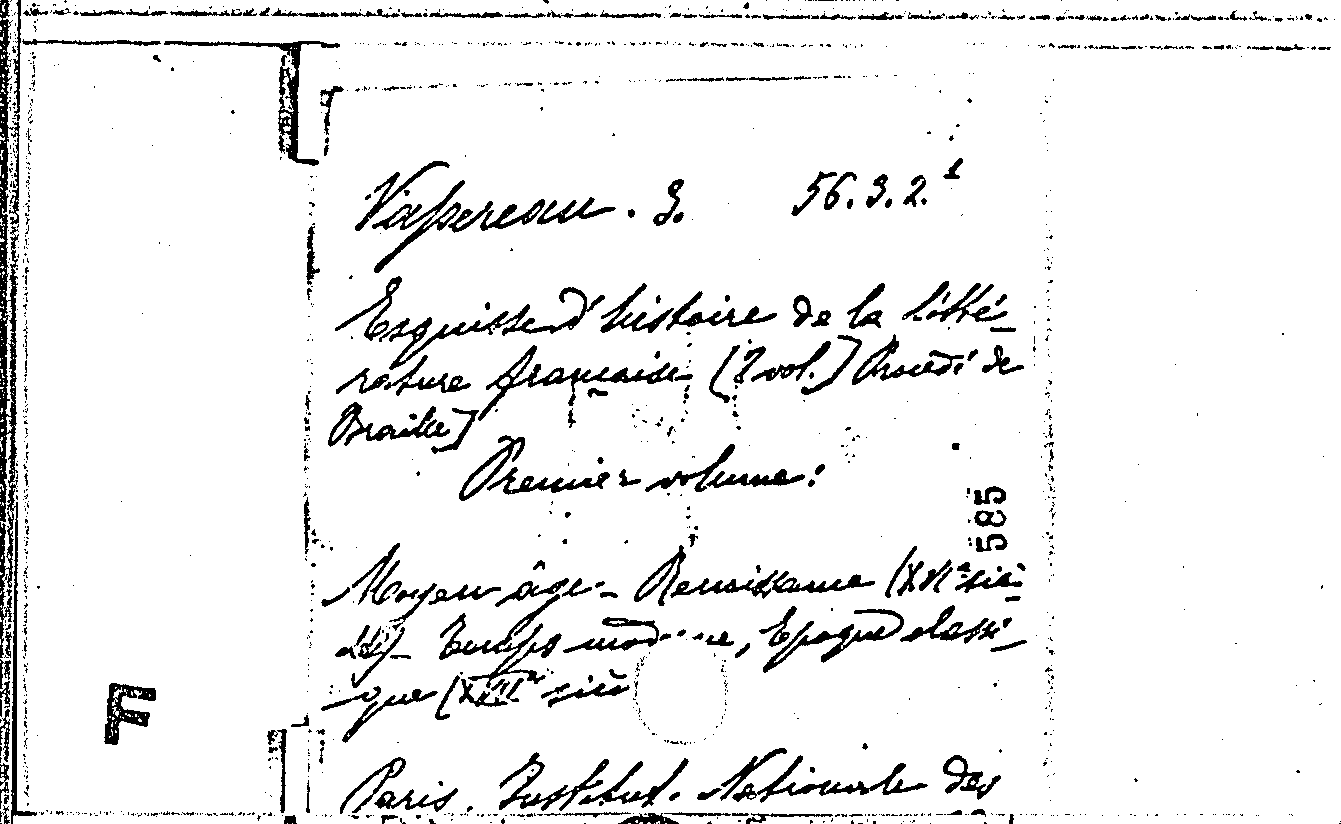 Vapereau. G. 56.3.2.1
Esquisse d'histoire de la litté-
rature française (2 vol.] Procédé de
Braille]
Premier volume:
585
Moyen âge - Renaissance (XVIe siè-
cle) - Temps moderne, Epoque classi-
que (XVIIe siè
F
Paris. Institut. Nationale des